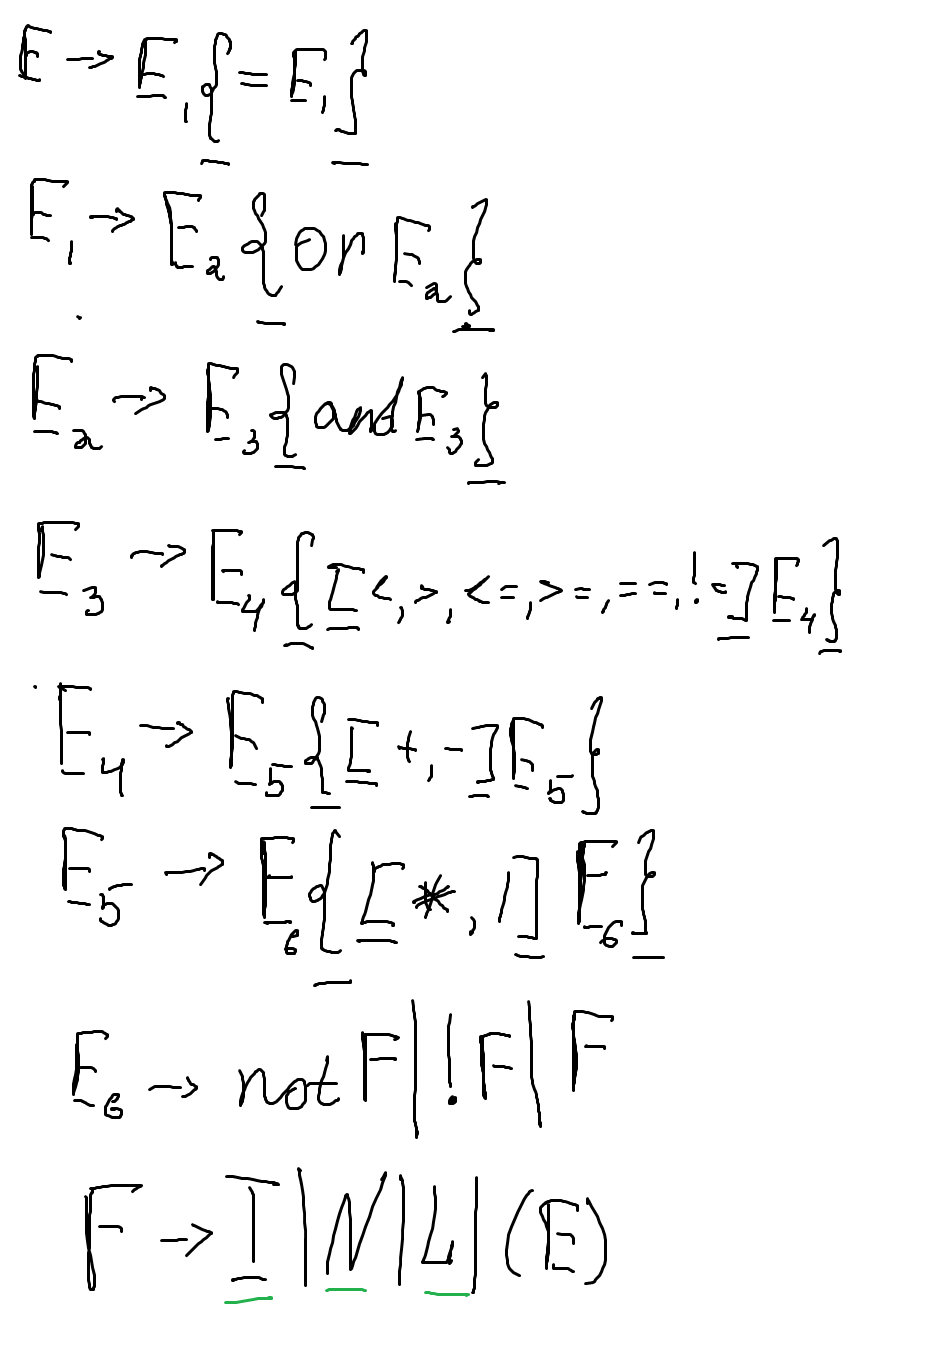 E → E₁{= E₁}
E₁ → E₂{or E₂}
E₂ → E₃{and E₃}
E₃ → E₄{[<,>,<=,>=,==,!=]E₄}
E₄ → E₅{[+,-]E₅}
E₅ → E₆{[*,/]E₆}
E₆ → not F|!F|F
F → I|N|L|(E)